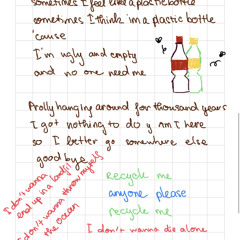 sometimes I feel like a plastic bottle
sometimes I think i'm a plastic bottle
'cause
I'm ugly and empty
and no one need me
Prolly hanging around for thousand years
I got nothing to do y am I here
so I better go somewhere else
goodbye
recycle me
anyone please
recycle me
I don't wanna die alone
I don't wanna
end up in a landfill
I don't wanna throw myself
the ocean